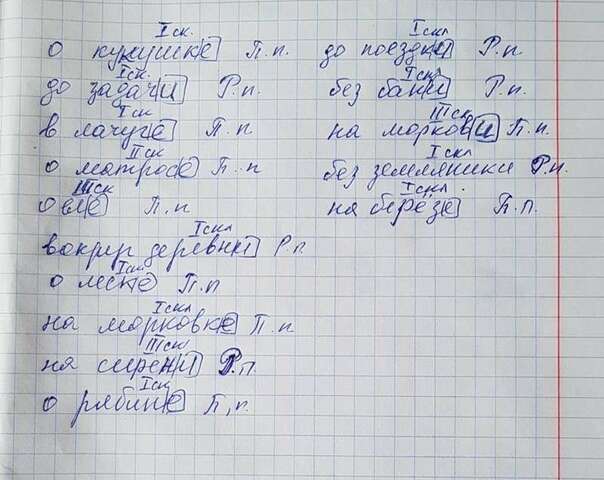 I ск.
о кукушке П.п.
I ск.
до задачи Р.п.
I ск
в лачуге П.п.
II ск
о матросе П.п
III ск
о П.п
I скл
вокруг деревни Р.п.
I ск
о П.п
I скл
на морковке П.п.
III ск
на сирени Р.п.
I ск
о рябине П.п.
I скл
до поездки Р.п.
I скл
без банки Р.п.
III ск
на моркови П.п.
I скл
без земляники Р.п.
I скл.
на берёзе П.п.